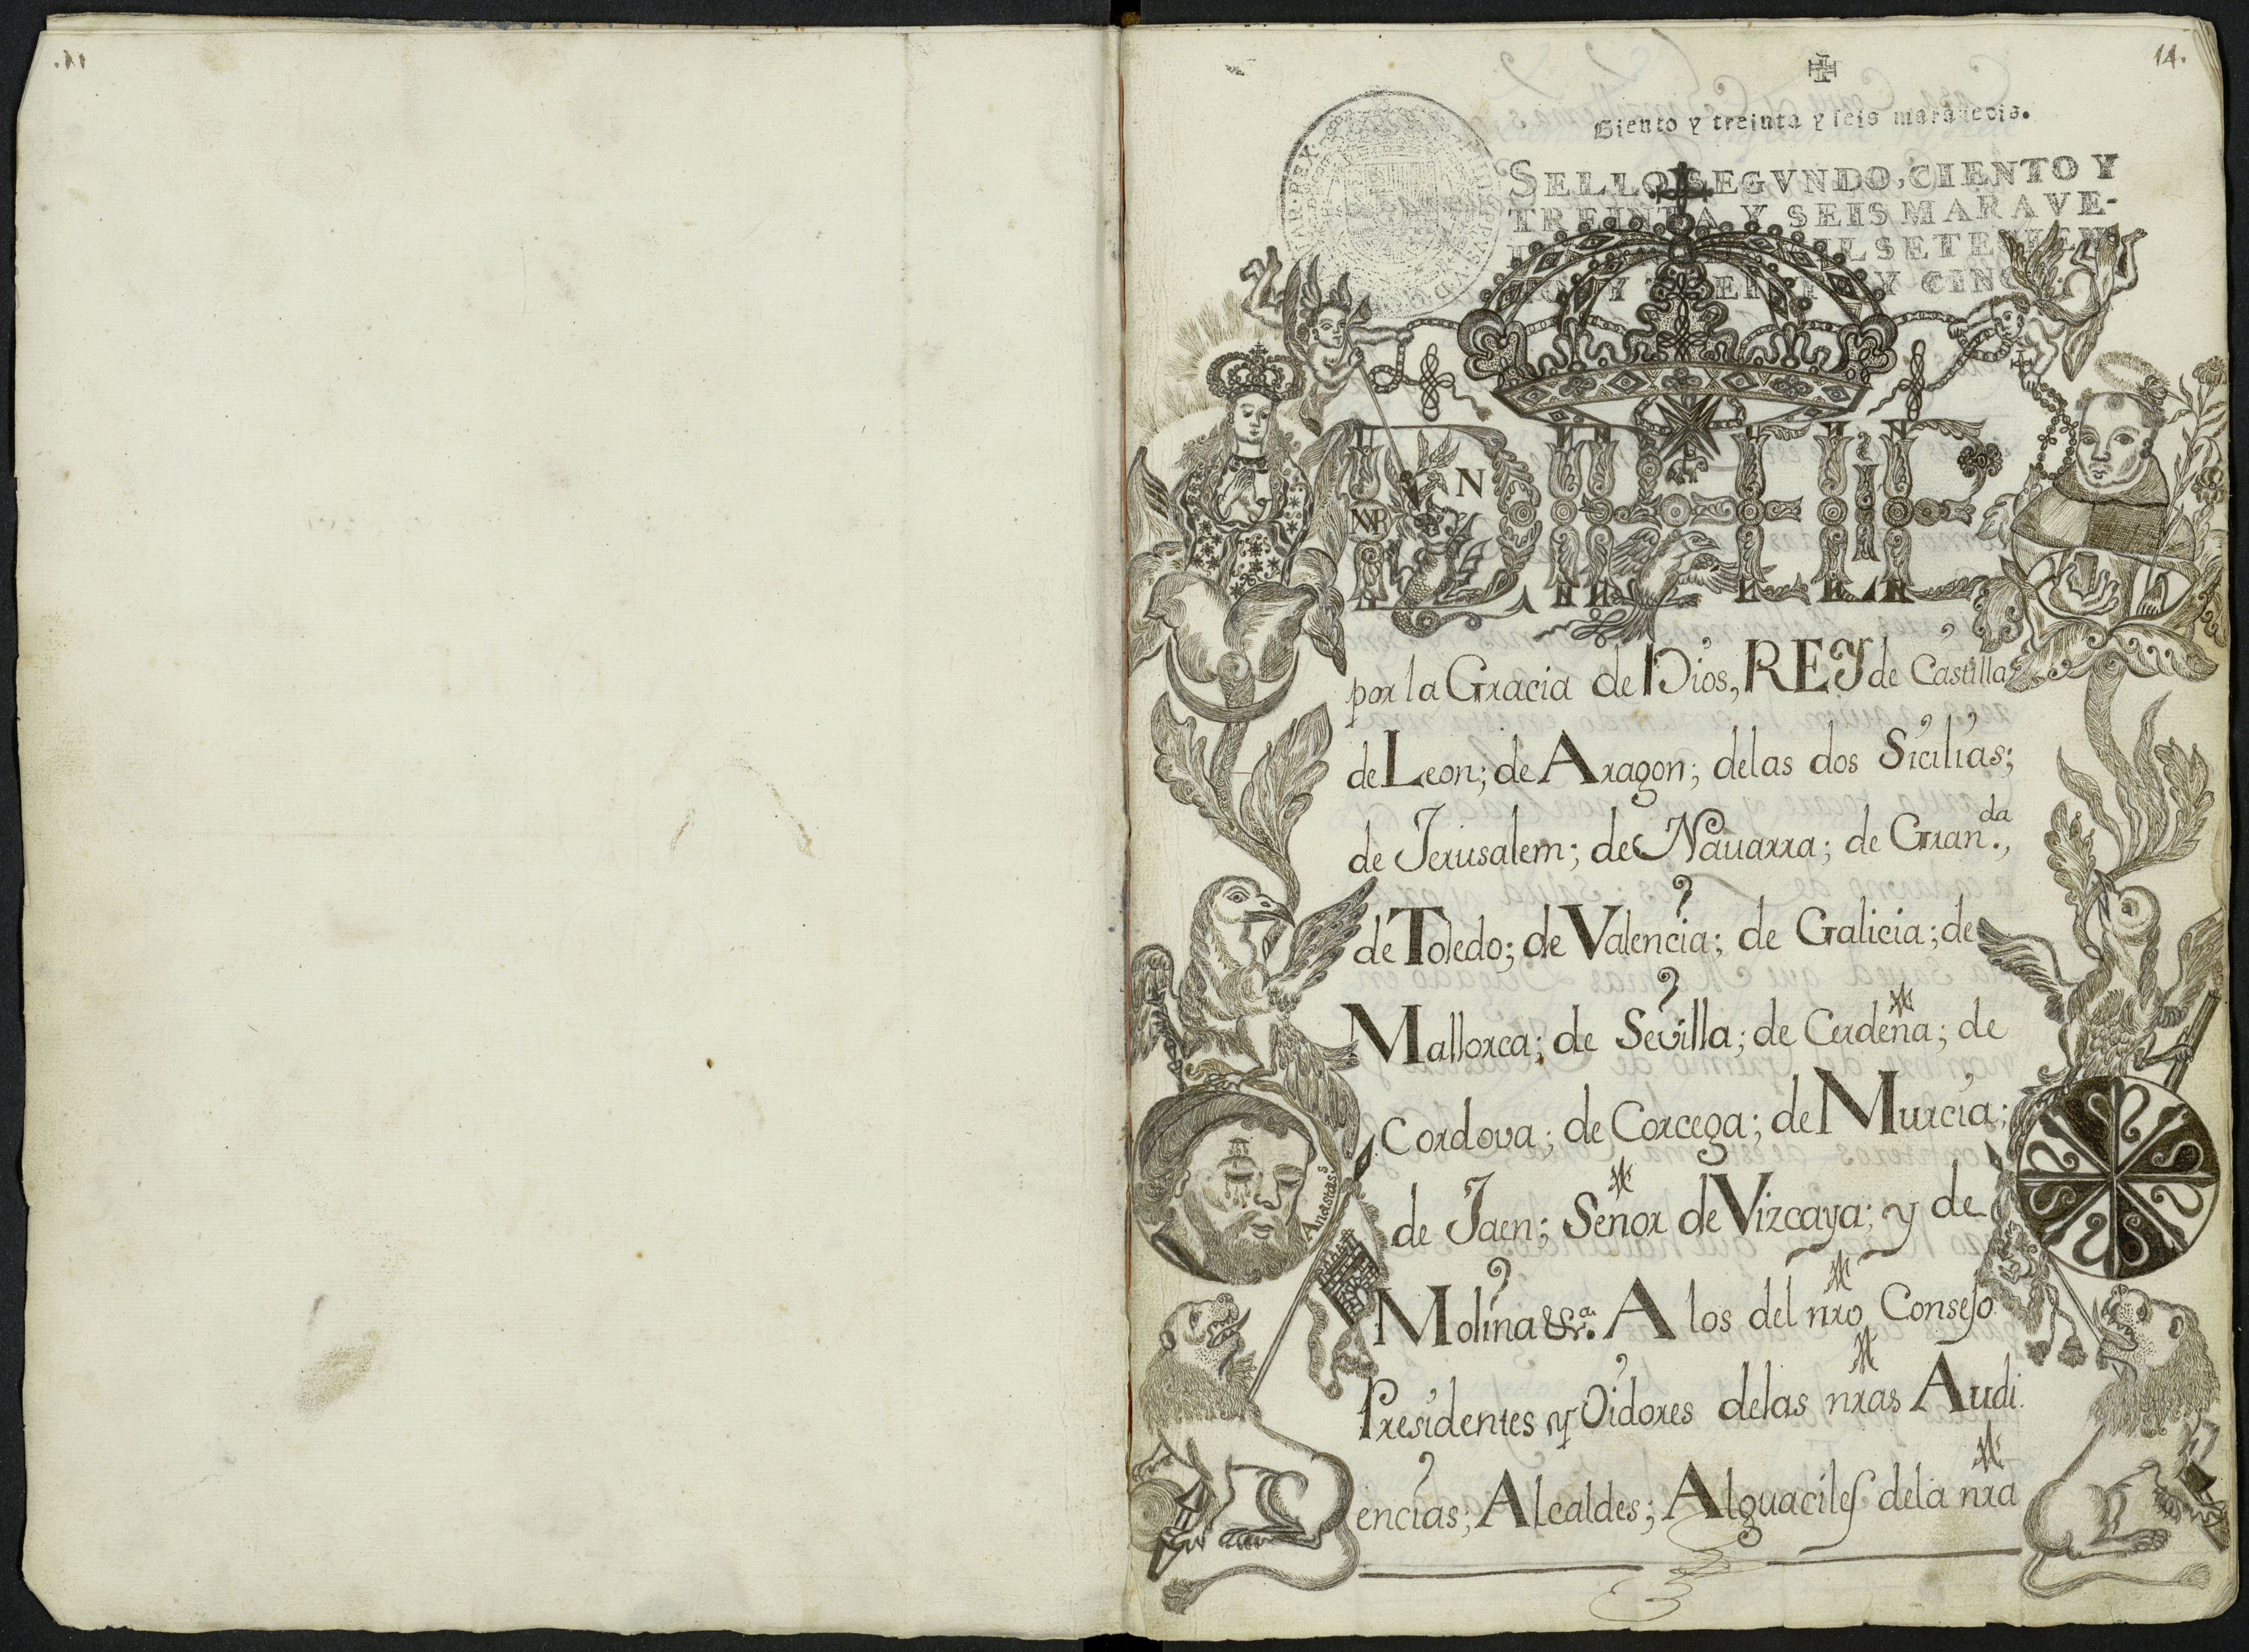 14.
Siento y treinta y seis marauedis.
SELLO SEGVNDO, CIENTO Y
TREINTA Y SEIS MARAVE-
Y CINCO
AR·REX
N
DN PHELIPE
por la Gracia de Dios, REY de Castilla
de Leon; de Aragon; delas dos Sicilias;
de Jerusalem; de Nauarra; de Granda.,
de Toledo; de Valencia; de Galicia; de
Mallorca; de Sevilla; de Cerdeña; de
Cordova; de Corcega; de Murcia;
de Jaen; Señor de Vizcaya; y de
Molina &ra. A los del nro Consejo
Presidentes y Oidores delas nras Audi
encias; Alcaldes; Alguaciles dela nra
Anastas.s